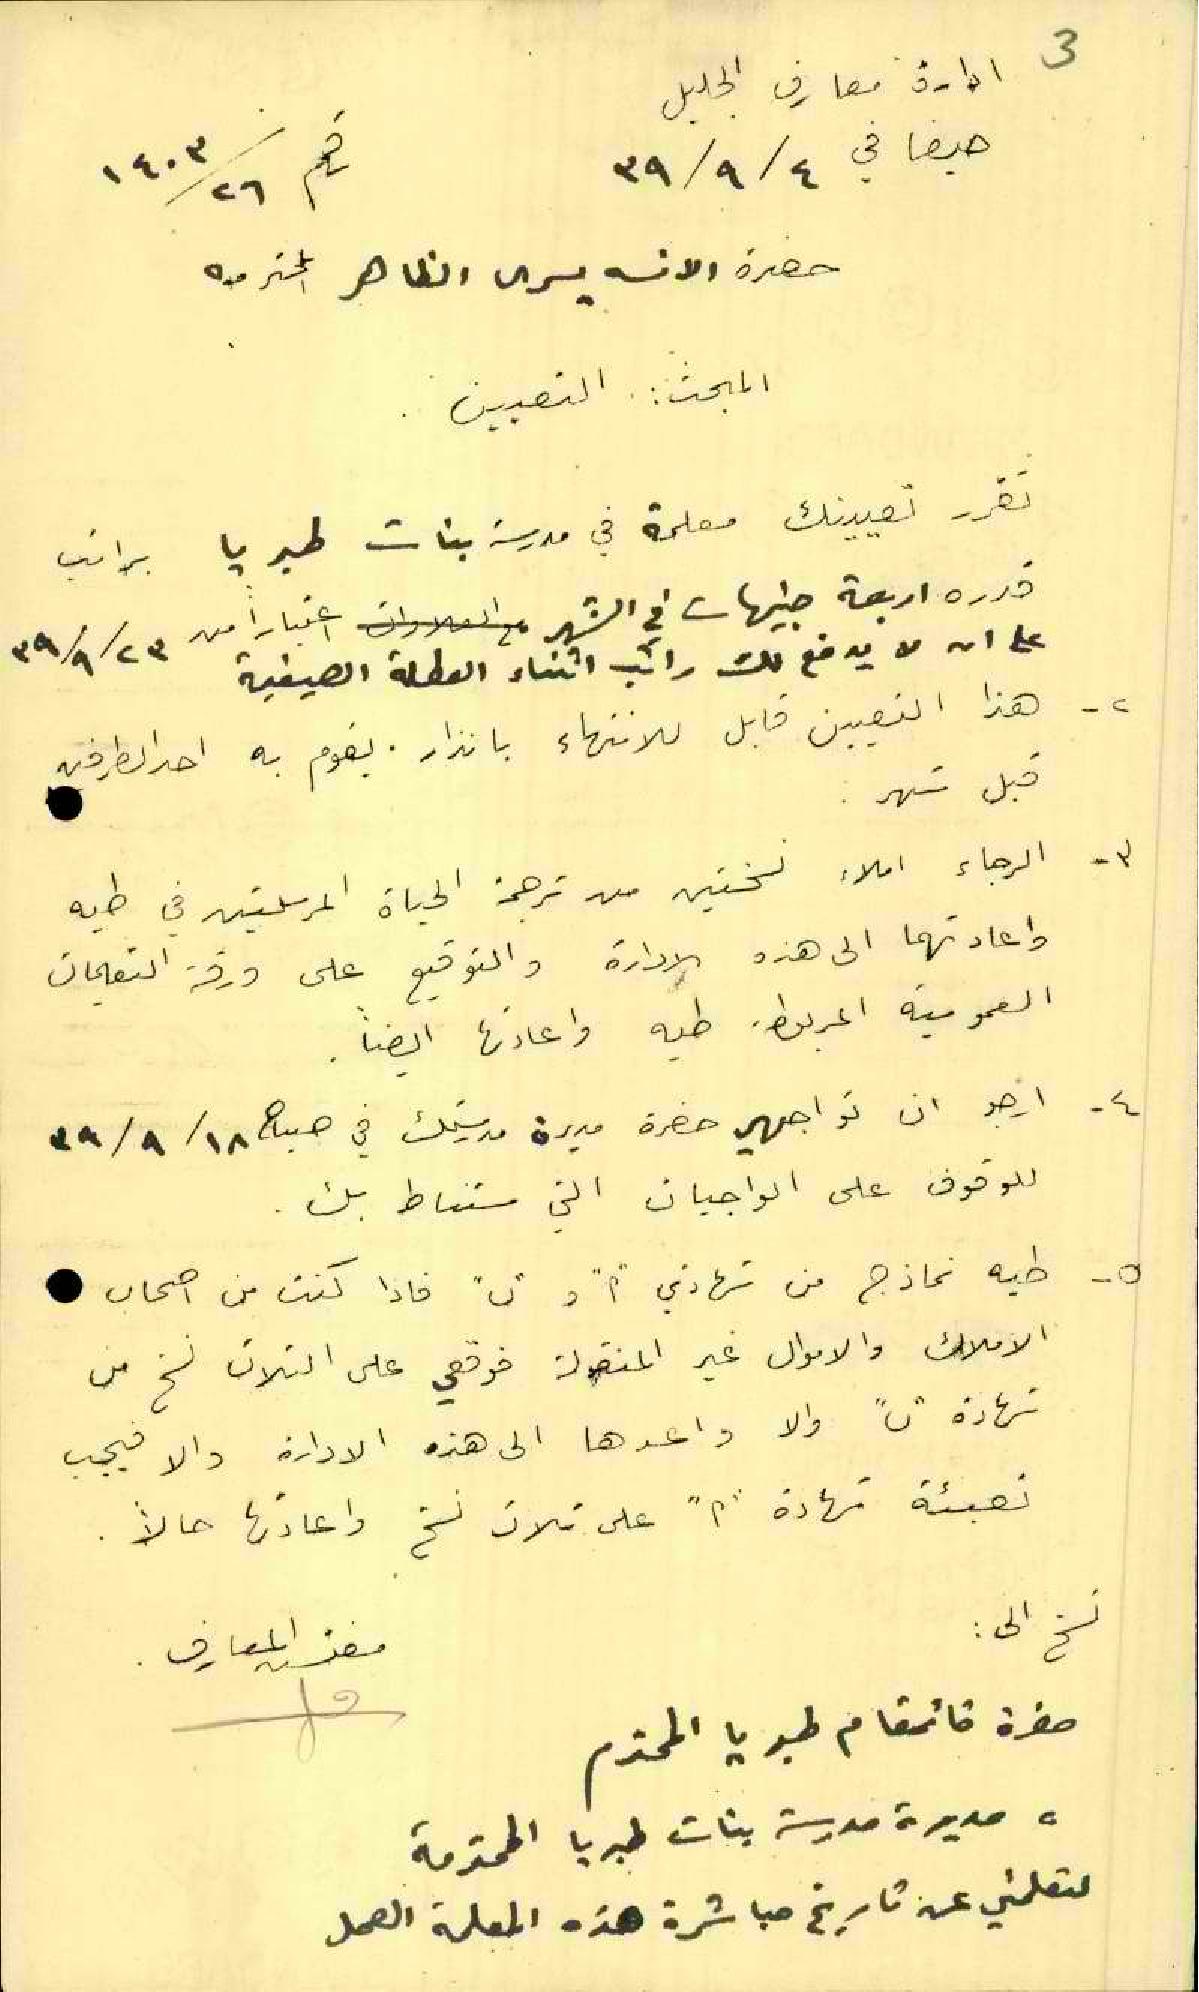 3
ادارة معارف الجليل
حيفا في ٤/٩/٣٩ رقم ١٤٠٣/٢٦
حضرة الانسه يسرى الظاهر المحترمه
المبحث: التعيين.
تقرر تعيينك معلمة في مدرسة بنات طبريا براتب
قدره اربعة جنيهات في الشهر مع العلاوات اعتباراً من ٢٣/٩/٣٩
على ان لا يدفع لك راتب اثناء العطلة الصيفية
٢- هذا التعيين قابل للانتهاء بانذار يقوم به احد الطرفين
قبل شهر.
٣- الرجاء املاء نسختين من ترجمة الحياة المرسلتين في طيه
واعادتهما الى هذه الادارة والتوقيع على ورقة التعليمات
العمومية المربوطة طيه واعادتها ايضاً.
٤- ارجو ان تواجهي حضرة مديرة مدرستك في صباح ١٨/٩/٣٩
للوقوف على الواجبات التي ستناط بك.
٥- طيه نماذج من شهادتي "م" و "ن" فاذا كنت من اصحاب
الاملاك والاموال غير المنقولة فوقعي على الثلاث نسخ من
شهادة "ن" والا واعدها الى هذه الادارة والا فيجب
تعبئة شهادة "م" على ثلاث نسخ واعادتها حالاً.
نسخ الى:
مفتش المعارف.
حضرة قائمقام طبريا المحترم
" مديرة مدرسة بنات طبريا المحترمة
لتعلمني عن تاريخ مباشرة هذه المعلمة العمل